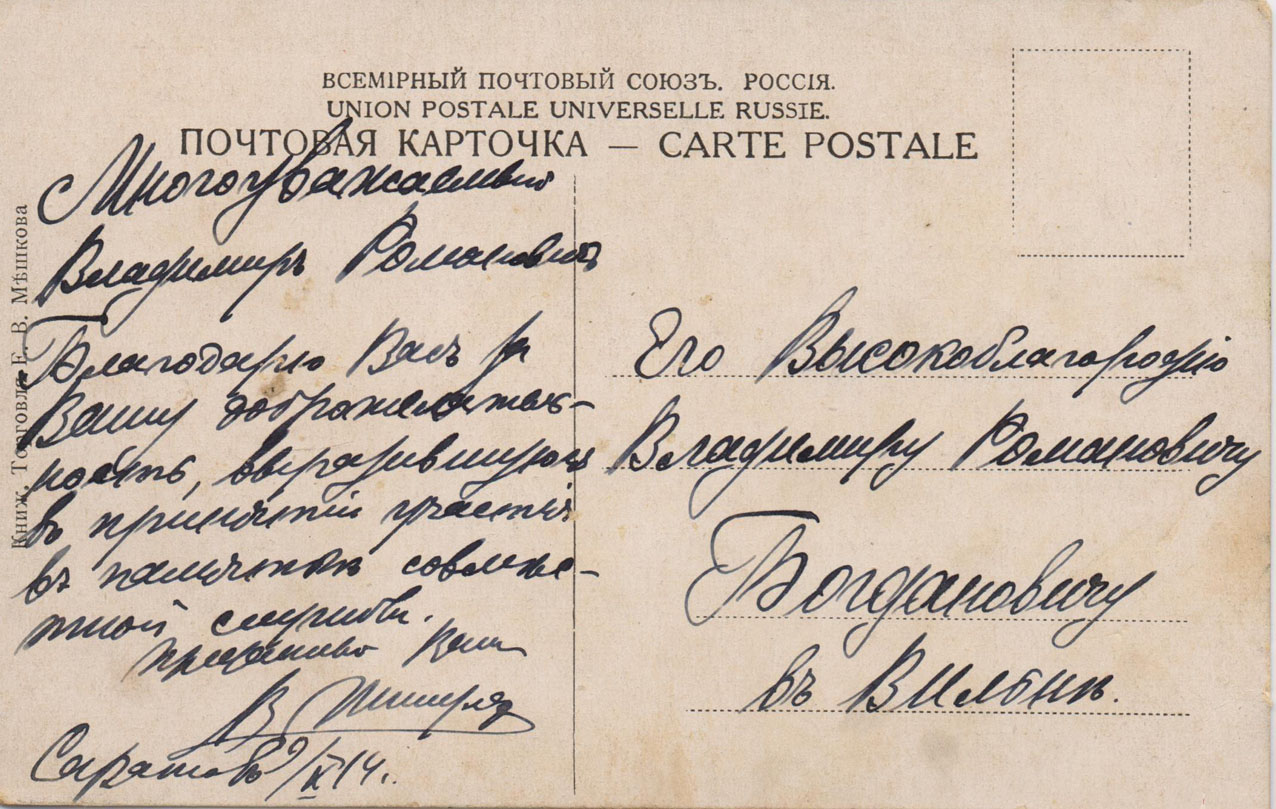 ВСЕМІРНЫЙ ПОЧТОВЫЙ СОЮЗЪ. РОССІЯ.
UNION POSTALE UNIVERSELLE RUSSIE.
ПОЧТОВАЯ КАРТОЧКА — CARTE POSTALE
Книж. Торговля Е. В. Мѣшкова
Многоуважаемый
Владимиръ Романовичъ
Благодарю Васъ за
Вашу доброжелатель-
ность, выразившуюся
въ принятіи участія
въ памяткѣ совмѣс-
тной службы.
Преданный Вамъ
В.
Саратовъ 9/IX 14.
Его Высокоблагородію
Владимиру Романовичу
Богдановичу
въ Вильнѣ.